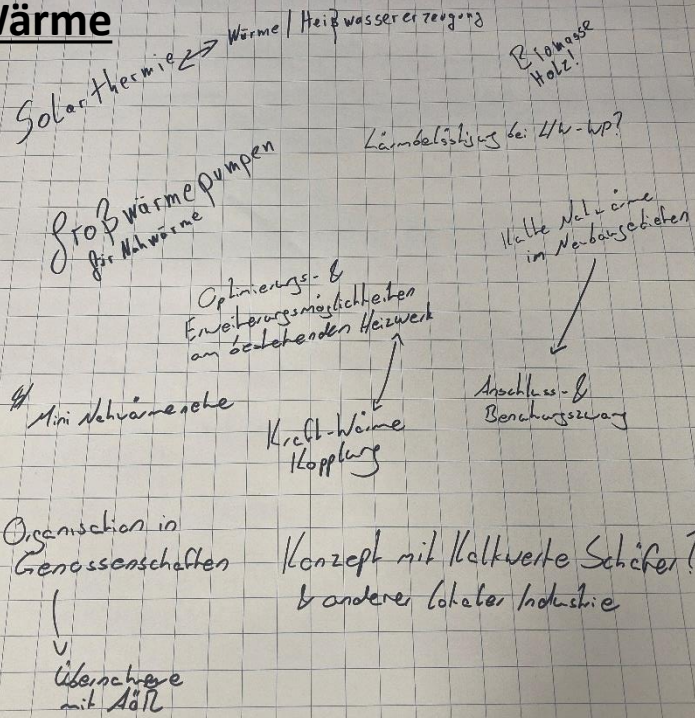 Wärme
Solarthermie
Wärme / Heißwassererzeugung
Biomasse
Holz!
Lärmbelästigung bei L/W-WP?
Großwärmepumpen
für Nahwärme
Kalte Nahwärme
im Neubaugebieten
Optimierungs- &
Erweiterungsmöglichkeiten
am bestehenden Heizwerk
Anschluss- &
Benutzungszwang
Mini Nahwärmenetze
Kraft-Wärme
Kopplung
Organisation in
Genossenschaften
Konzept mit Kalkwerke Schäfer?
& anderer lokaler Industrie
Übernahme
mit AöR